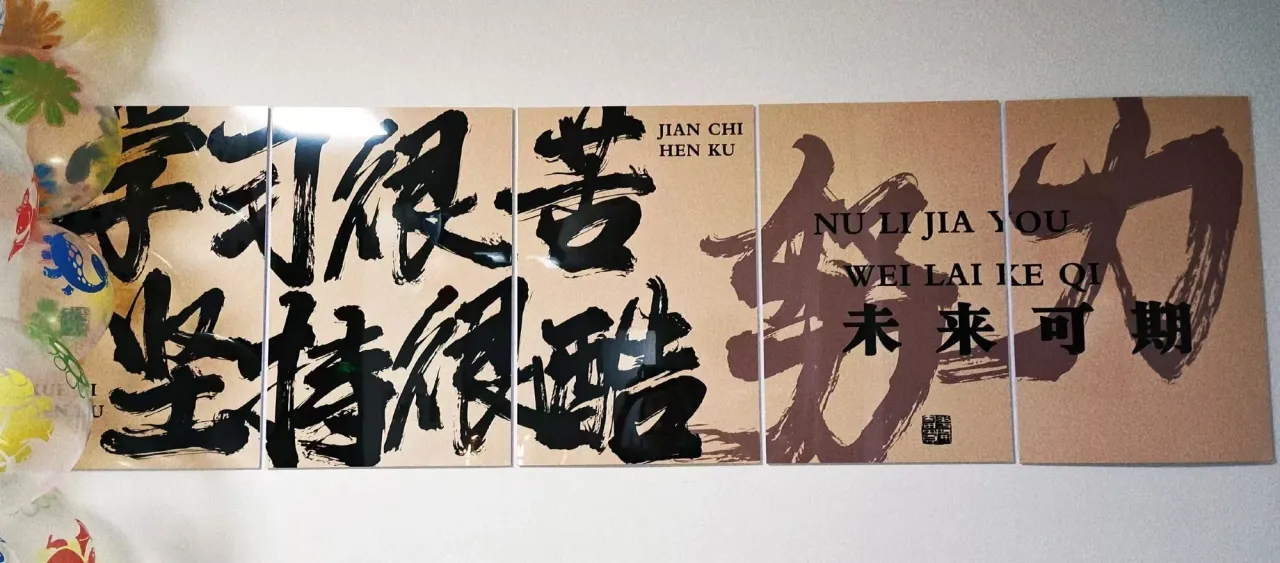 学习很苦
坚持很酷
JIAN CHI
HEN KU
努力
NU LI JIA YOU
WEI LAI KE QI
未来可期